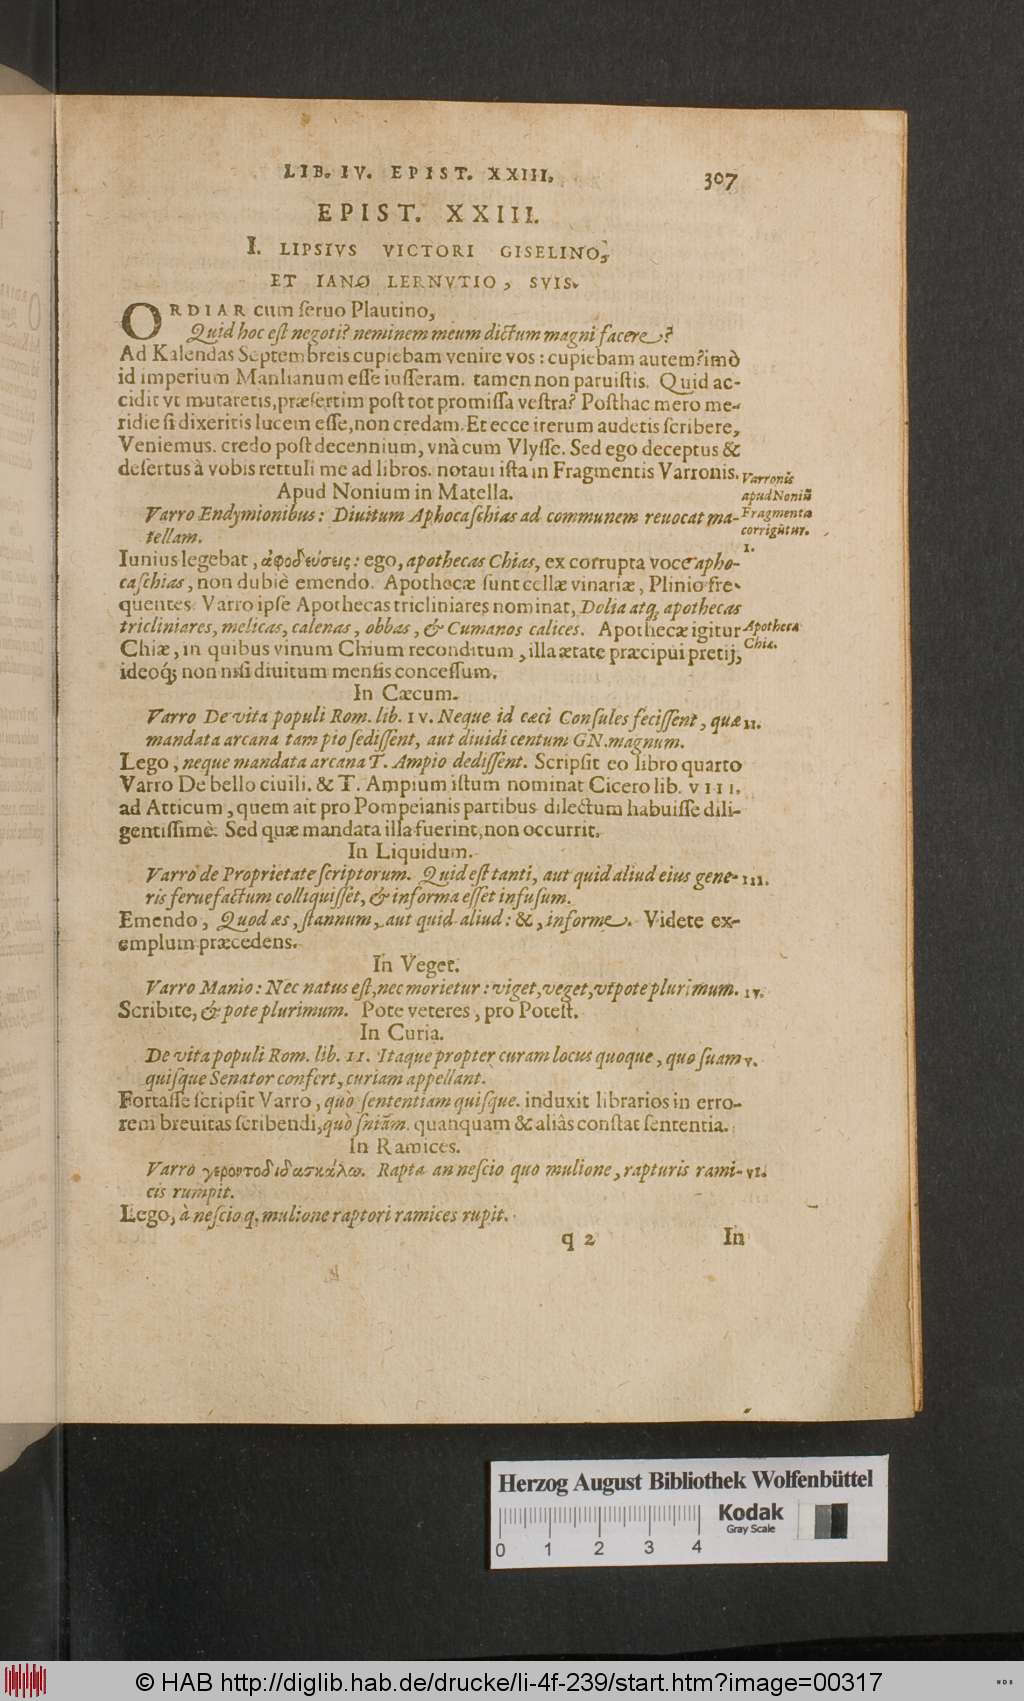 LIB. IV. EPIST. XXIII. 307
EPIST. XXIII.
I. LIPSIVS VICTORI GISELINO,
ET IANO LERNVTIO, SVIS.
ORDIAR cum ſeruo Plautino,
Quid hoc eſt negoti? neminem meum dictum magni facere?
Ad Kalendas Septembreis cupiebam venire vos: cupiebam autem? imò
id imperium Manlianum eſſe iuſſeram. tamen non paruiſtis. Quid ac-
cidit vt mutaretis, præſertim poſt tot promiſſa veſtra? Poſthac mero me-
ridie ſi dixeritis lucem eſſe, non credam. Et ecce iterum audetis ſcribere,
Veniemus. credo poſt decennium, vnà cum Vlyſſe. Sed ego deceptus &
deſertus à vobis rettuli me ad libros. notaui iſta in Fragmentis Varronis.
Varronis
apud Noniū
Fragmenta
corrigūtur.
I.
Apud Nonium in Matella.
Varro Endymionibus: Diuitum Aphocaſchias ad communem reuocat ma-
tellam.
Iunius legebat, ἀφοδεύσεις: ego, apothecas Chias, ex corrupta voce apho-
caſchias, non dubiè emendo. Apothecæ ſunt cellæ vinariæ, Plinio fre-
quentes. Varro ipſe Apothecas tricliniares nominat, Dolia atq; apothecas
tricliniares, melicas, calenas, obbas, & Cumanos calices. Apothecæ igitur
Apotheca
Chia.
Chiæ, in quibus vinum Chium reconditum, illa ætate præcipui pretij,
ideoq́; non niſi diuitum menſis conceſſum.
In Cæcum.
Varro De vita populi Rom. lib. IV. Neque id cæci Conſules feciſſent, quæ II.
mandata arcana tam pio ſediſſent, aut diuidi centum GN. magnum.
Lego, neque mandata arcana T. Ampio dediſſent. Scripſit eo libro quarto
Varro De bello ciuili. & T. Ampium iſtum nominat Cicero lib. VIII.
ad Atticum, quem ait pro Pompeianis partibus dilectum habuiſſe dili-
gentiſſimè. Sed quæ mandata illa fuerint, non occurrit.
In Liquidum.
Varro de Proprietate ſcriptorum. Quid eſt tanti, aut quid aliud eius gene- III.
ris feruefactum colliquiſſet, & in forma eſſet infuſum.
Emendo, Quod æs, ſtannum, aut quid aliud: &, informe. Videte ex-
emplum præcedens.
In Veget.
Varro Manio: Nec natus eſt, nec morietur: viget, veget, vt pote plurimum. IV.
Scribite, & pote plurimum. Pote veteres, pro Poteſt.
In Curia.
De vita populi Rom. lib. II. Itaque propter curam locus quoque, quo ſuam V.
quiſque Senator confert, curiam appellant.
Fortaſſe ſcripſit Varro, quò ſententiam quiſque. induxit librarios in erro-
rem breuitas ſcribendi, quò ſn̄iam. quanquam & aliâs conſtat ſententia.
In Ramices.
Varro γεροντοδιδασκάλῳ. Rapta an neſcio quo mulione, rapturis rami- VI.
cis rumpit.
Lego, à neſcio q. mulione raptori ramices rupit.
q 2 In
Herzog August Bibliothek Wolfenbüttel
Kodak
Gray Scale
0 1 2 3 4
© HAB http://diglib.hab.de/drucke/li-4f-239/start.htm?image=00317